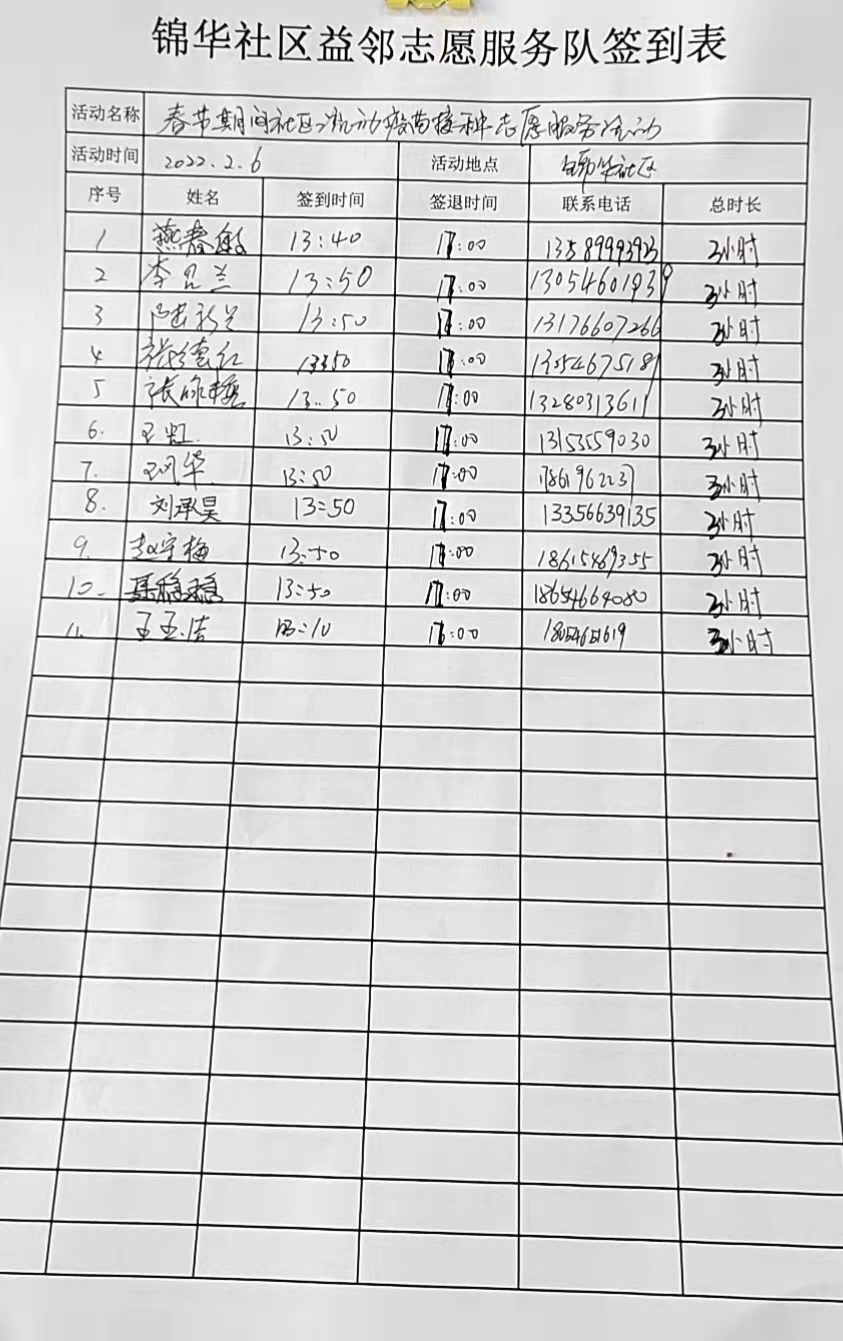 锦华社区益邻志愿服务队签到表
活动名称 春节期间社区流动疫苗接种志愿服务活动
活动时间 2022.2.6 活动地点 锦华社区
序号 姓名 签到时间 签退时间 联系电话 总时长
1 燕春敏 13:40 17:00 13589993923 3小时
2 李兰 13:50 17:00 13054601939 3小时
3 13:50 17:00 13176607266 3小时
4 张德红 1350 17:00 13554675181 3小时
5 张 13:50 17:00 13280313611 3小时
6. 王虹 13:50 17:00 13153559030 3小时
7. 王凤华 13:50 17:00 1786196223 3小时
8. 刘承昊 13:50 17:00 13356639135 3小时
9. 赵守梅 13:50 17:00 18615469355 3小时
10. 聂稳稳 13:50 17:00 18654664080 3小时
11. 王玉洁 13:10 17:00 3小时